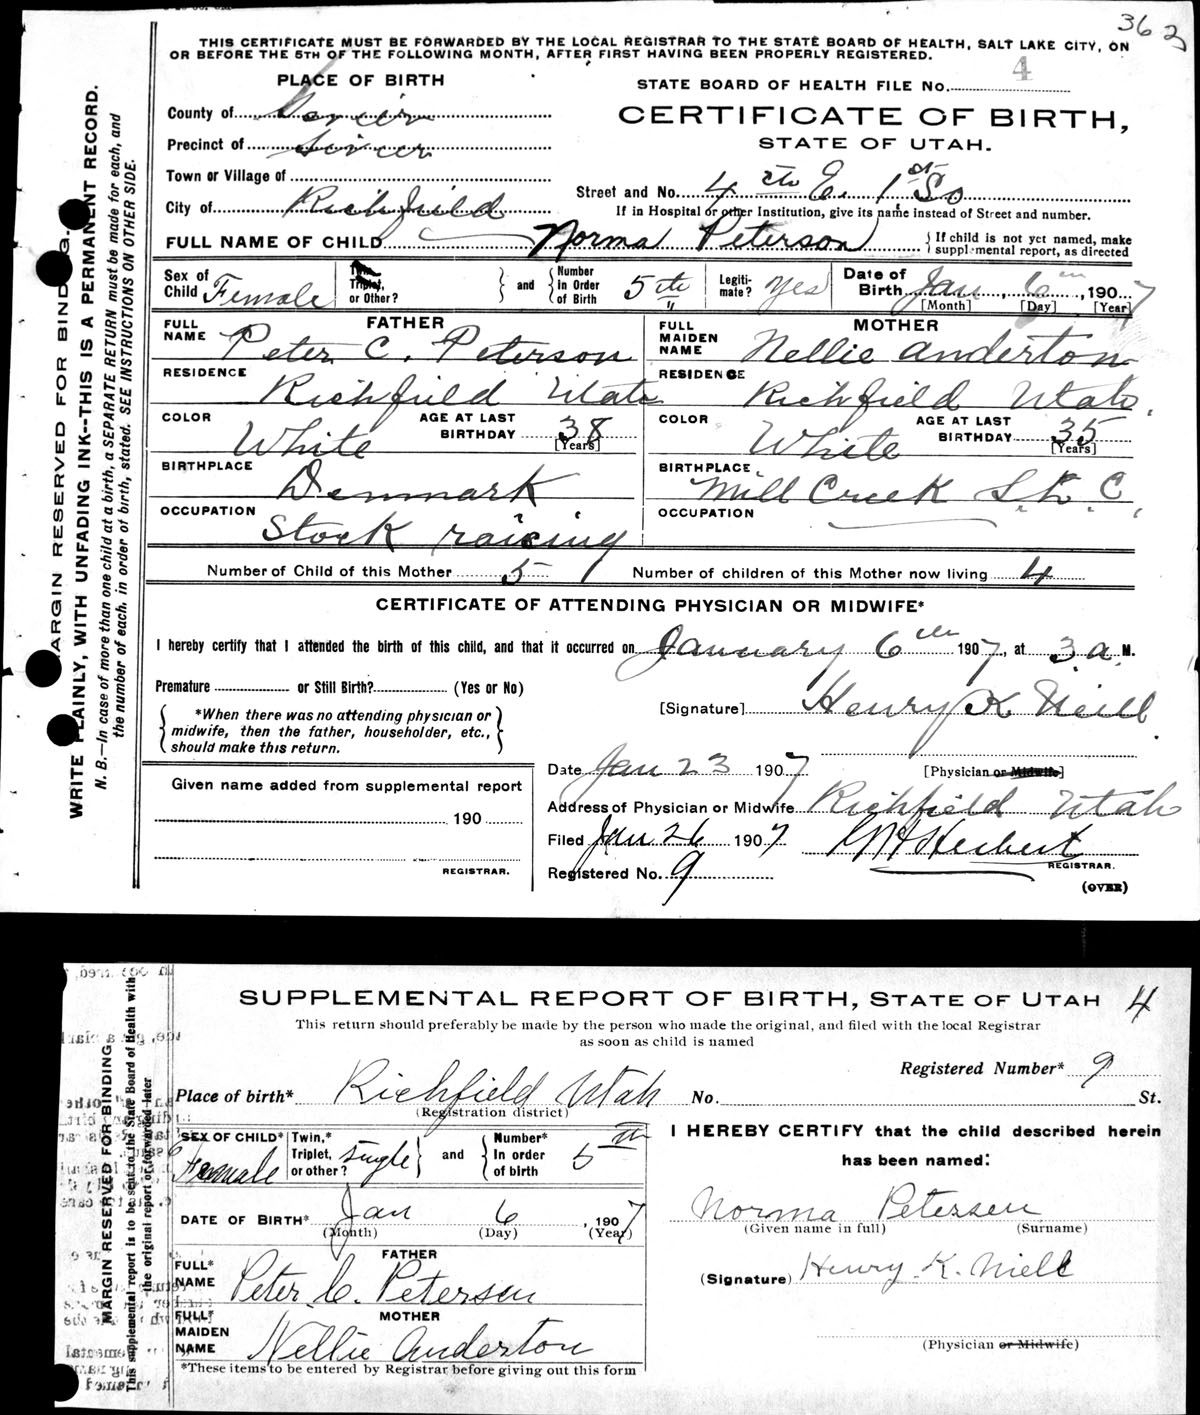 362
THIS CERTIFICATE MUST BE FORWARDED BY THE LOCAL REGISTRAR TO THE STATE BOARD OF HEALTH, SALT LAKE CITY, ON
OR BEFORE THE 5TH OF THE FOLLOWING MONTH, AFTER FIRST HAVING BEEN PROPERLY REGISTERED.
PLACE OF BIRTH
STATE BOARD OF HEALTH FILE No. 4
County of Sevier
CERTIFICATE OF BIRTH,
Precinct of Sevier
STATE OF UTAH.
Town or Village of
Street and No. 4th E. 1st So
City of Richfield
If in Hospital or other Institution, give its name instead of Street and number.
FULL NAME OF CHILD Norma Peterson
If child is not yet named, make
supplemental report, as directed
Sex of Child Female
Twin, Triplet, or Other?
and
Number in Order of Birth 5th
Legitimate? yes
Date of Birth Jan 6th, 1907
[Month] [Day] [Year]
FATHER
FULL NAME Peter C. Peterson
RESIDENCE Richfield Utah
COLOR White
AGE AT LAST BIRTHDAY 38 [Years]
BIRTHPLACE Denmark
OCCUPATION Stock raising
MOTHER
FULL MAIDEN NAME Nellie Anderton
RESIDENCE Richfield Utah.
COLOR White
AGE AT LAST BIRTHDAY 35 [Years]
BIRTHPLACE Mill Creek S.L.C.
OCCUPATION
Number of Child of this Mother 5
Number of children of this Mother now living 4
CERTIFICATE OF ATTENDING PHYSICIAN OR MIDWIFE*
I hereby certify that I attended the birth of this child, and that it occurred on January 6th 1907, at 3 a. M.
Premature or Still Birth? (Yes or No)
[Signature] Henry K Neill
*When there was no attending physician or
midwife, then the father, householder, etc.,
should make this return.
[Physician or Midwife]
Date Jan 23 1907
Given name added from supplemental report
190
REGISTRAR.
Address of Physician or Midwife Richfield Utah
Filed Jan 26 1907
Herbert
REGISTRAR.
Registered No. 9
(OVER)
MARGIN RESERVED FOR BINDING.
WRITE PLAINLY, WITH UNFADING INK--THIS IS A PERMANENT RECORD.
N. B.—In case of more than one child at a birth, a SEPARATE RETURN must be made for each, and
the number of each, in order of birth, stated. SEE INSTRUCTIONS ON OTHER SIDE.
SUPPLEMENTAL REPORT OF BIRTH, STATE OF UTAH 4
This return should preferably be made by the person who made the original, and filed with the local Registrar
as soon as child is named
Registered Number* 9
Place of birth* Richfield Utah No. St.
(Registration district)
SEX OF CHILD* Female
Twin,* Triplet, or other? single
and
Number* In order of birth 5th
DATE OF BIRTH* Jan 6, 1907
(Month) (Day) (Year)
FATHER
FULL* NAME Peter C. Petersen
MOTHER
FULL* MAIDEN NAME Nellie Anderton
*These items to be entered by Registrar before giving out this form
I HEREBY CERTIFY that the child described herein
has been named:
Norma Petersen
(Given name in full) (Surname)
(Signature) Henry K. Niell
(Physician or Midwife)
MARGIN RESERVED FOR BINDING
This supplemental report is to be sent to the State Board of Health with
the original report or forwarded later